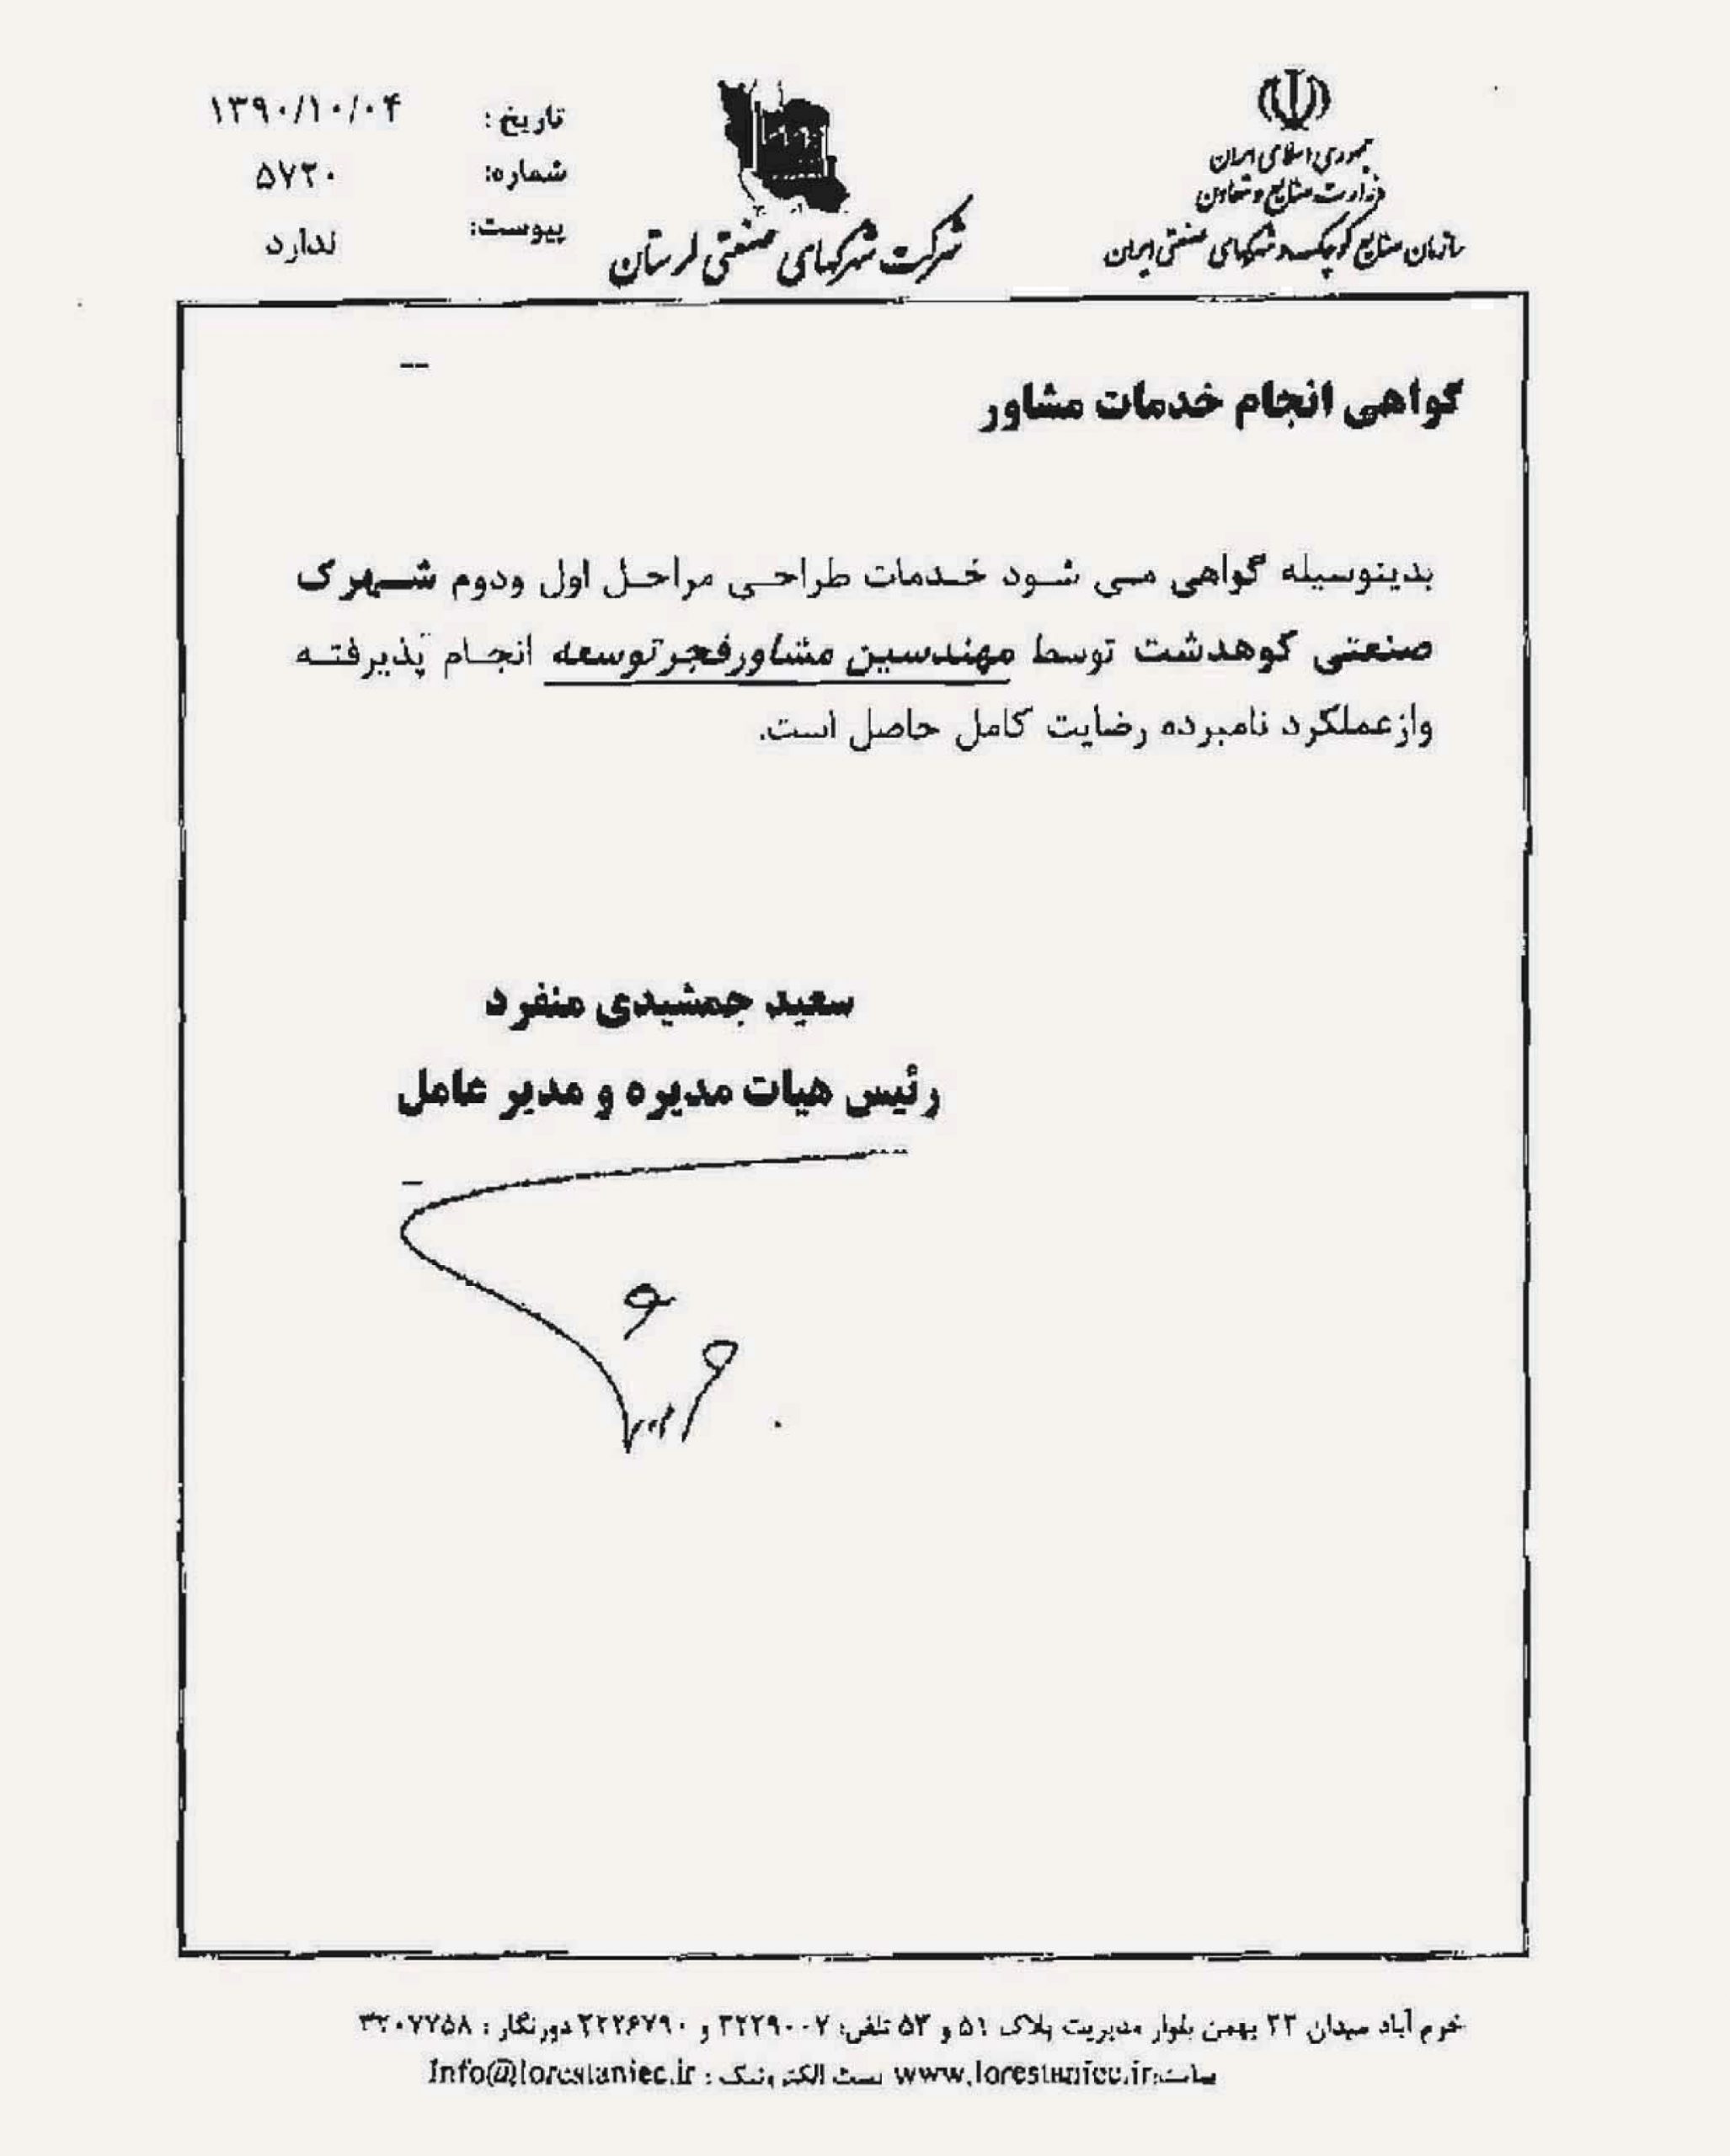 جمهوری اسلامی ایران
وزارت صنایع و معادن
سازمان صنایع کوچک و شهرکهای صنعتی ایران
شرکت شهرکهای صنعتی لرستان
تاریخ : ۱۳۹۰/۱۰/۰۴
شماره: ۵۷۲۰
پیوست: ندارد
گواهی انجام خدمات مشاور
بدینوسیله گواهی می شود خدمات طراحی مراحل اول ودوم شهرک
صنعتی کوهدشت توسط مهندسین مشاورفجرتوسعه انجام پذیرفته
وازعملکرد نامبرده رضایت کامل حاصل است.
سعید جمشیدی منفرد
رئیس هیات مدیره و مدیر عامل
خرم آباد میدان ۲۲ بهمن بلوار مدیریت پلاک ۵۱ و ۵۳ تلفن: ۳۲۲۹۰۰۷ و ۳۲۲۶۷۹۰ دورنگار : ۳۲۰۷۷۵۸
سایت:www.lorestaniec.ir پست الکترونیک : Info@lorestaniec.ir